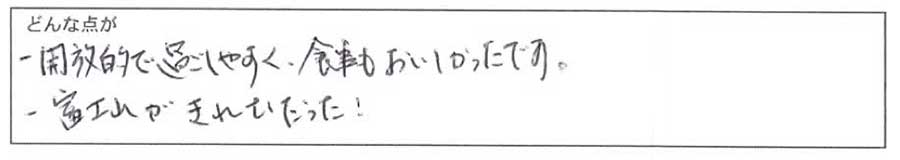 どんな点が
- 開放的で過ごしやすく、食事もおいしかったです。
- 富士山がきれいだった!